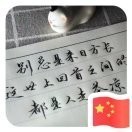 别总是来日方长
这世上回首之间的
都是人走茶凉